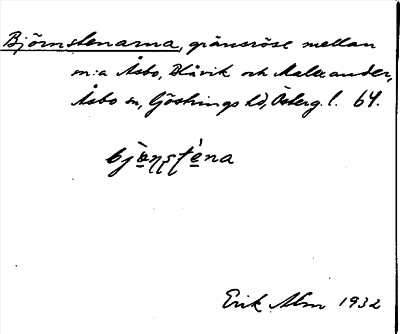 Björnstenarna, gränsröse mellan
sn:a Åsbo, Blåvik och Malexander,
Åsbo sn, Göstrings hd, Österg. l. 64.
bjö̀ṇsté̱na
Erik Alm 1932